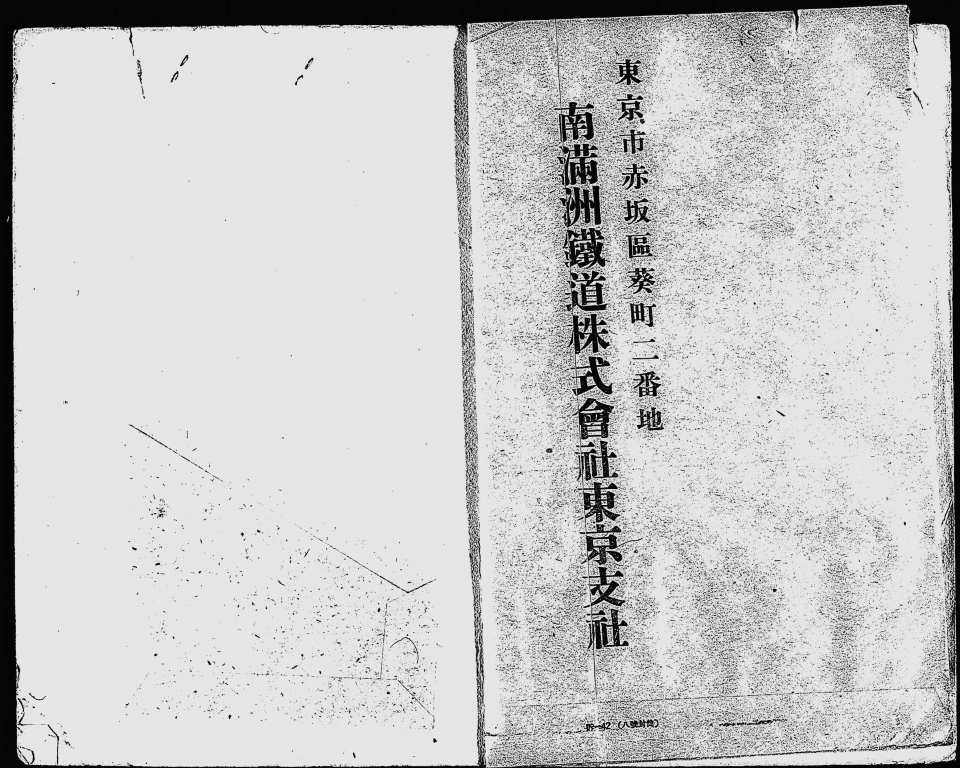 東京市赤坂區葵町二番地
南滿洲鐵道株式會社東京支社
(八號封筒)